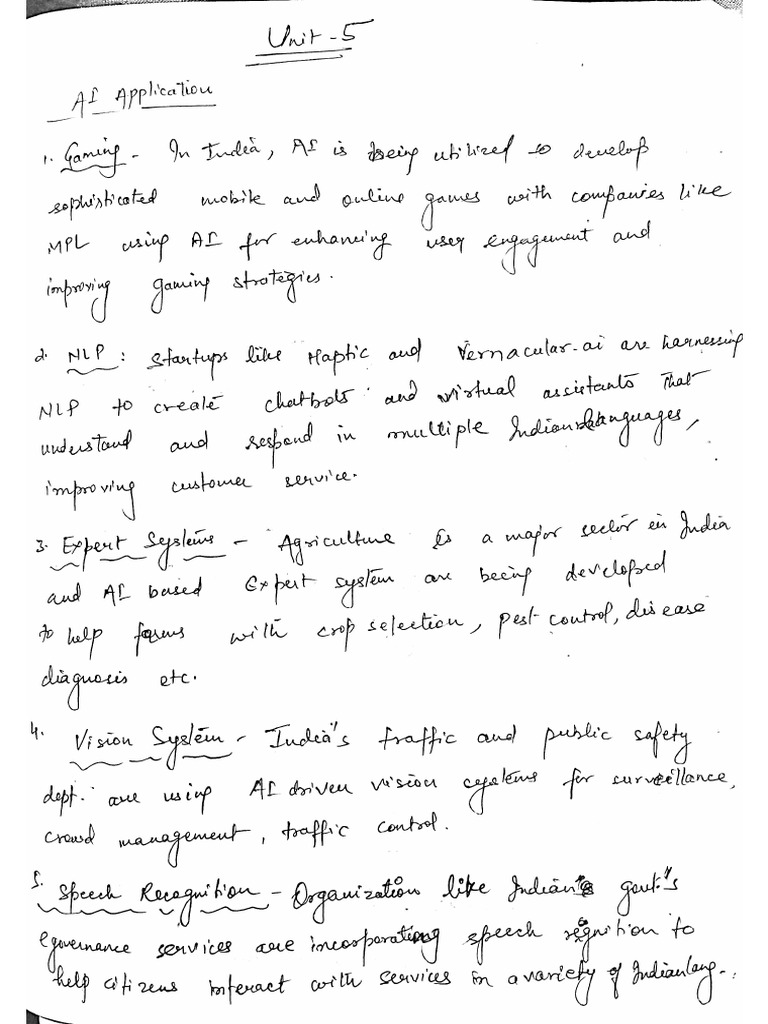 Unit - 5
AI Application
1. Gaming - In India, AI is being utilized to develop
sophisticated mobile and online games with companies like
MPL using AI for enhancing user engagement and
improving gaming strategies.
2. NLP : Startups like Haptic and Vernacular.ai are harnessing
NLP to create chatbots and virtual assistants that
understand and respond in multiple Indian languages,
improving customer service.
3. Expert Systems - Agriculture is a major sector in India
and AI based Expert system are being developed
to help farms with crop selection, pest control, disease
diagnosis etc.
4. Vision System - India's traffic and public safety
dept. are using AI driven vision systems for surveillance,
crowd management, traffic control.
5. Speech Recognition - Organization like Indian govt.'s
egovernance services are incorporating speech regnition to
help citizens interact with services in a variety of Indian lang..